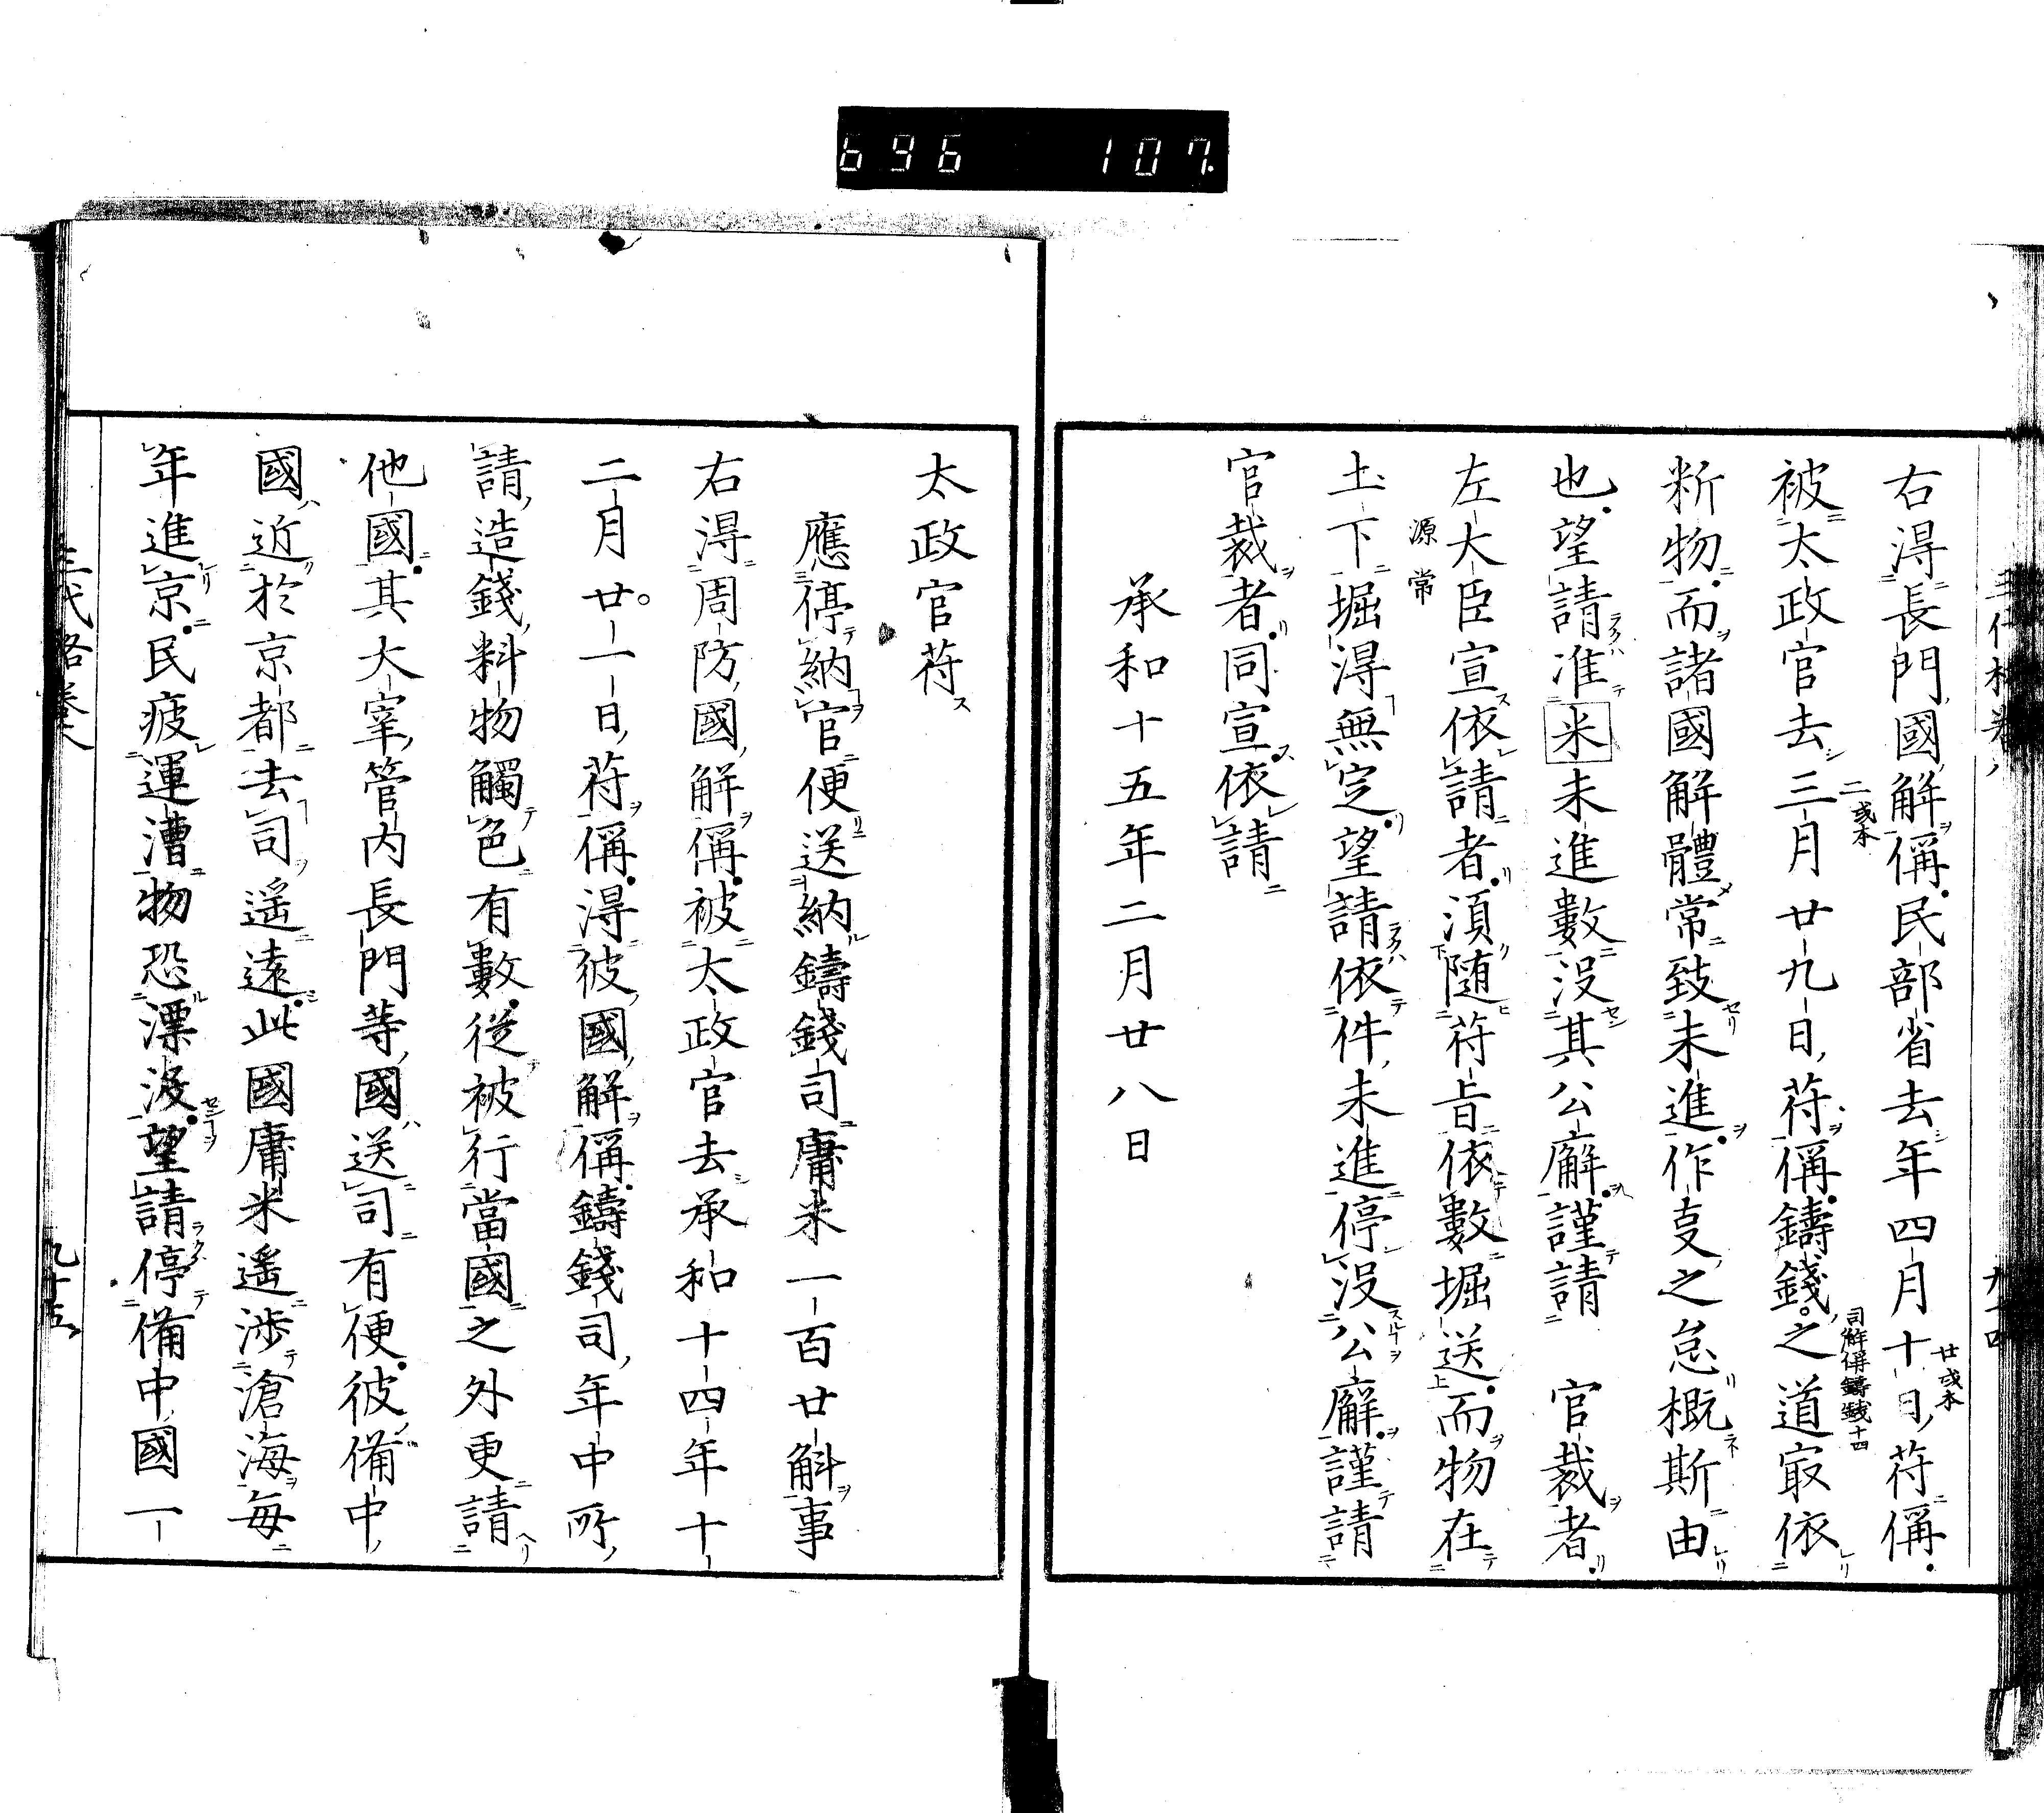 696 107
右得長門國解稱民部省去年四月十日符稱
廿或本
被太政官去三月廿九日符稱鑄錢之道㝡依
二或本
司解偁鑄錢十四
断物而諸國解體常致未進作㕝之怠概斯由
也望請准米未進數没其公廨謹請　官裁者
左大臣宣依請者湏随苻旨依數堀送而物在
源常
土下堀得無定望請依件未進停没公廨謹請
官裁者同宣依請
承和十五年二月廿八日
太政官苻
應停納官便送納鑄錢司庸米一百廿斛事
右得周防國解稱被太政官去承和十四年十
二月廿一日苻稱得彼國解稱鑄錢司年中所
請造錢料物觸色有數從被行當國之外更請
他國其大宰管内長門等國送司有便彼備中
國近於京都去司遥遠此國庸米遥渉滄海毎
年進京民疲運漕物恐漂没望請停備中國一
三代格卷八 九十五